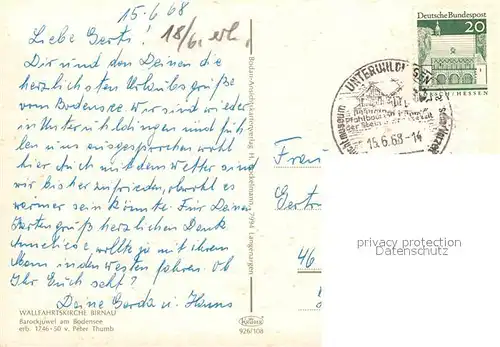 15.6.68
Liebe Gerti!
18/6. erh.
Dir und den Deinen die
herzlichsten Urlaubsgrüße
vom Bodensee. Wir sind wieder
in Unteruhldingen und füh-
len uns ausgesprochen wohl
hier. Auch mit dem Wetter sind
wir bisher zufrieden, obwohl es
wärmer sein könnte. Für Deinen
Kartengruß herzlichen Dank
Anneliese wollte ja mit ihrem
Mann in den Westen fahren. Ob
Ihr Euch seht?
Deine Gerda u. Hanns
WALLFAHRTSKIRCHE BIRNAU
Barockjuwel am Bodensee
erb. 1746-50 v. Peter Thumb
7994 Langenargen
Krüger
926/108
Deutsche Bundespost
20
LORSCH/HESSEN
UNTERUHLDINGEN
15.6.68-14
Frau
Gertr
46
privacy protection
VDMedien.de